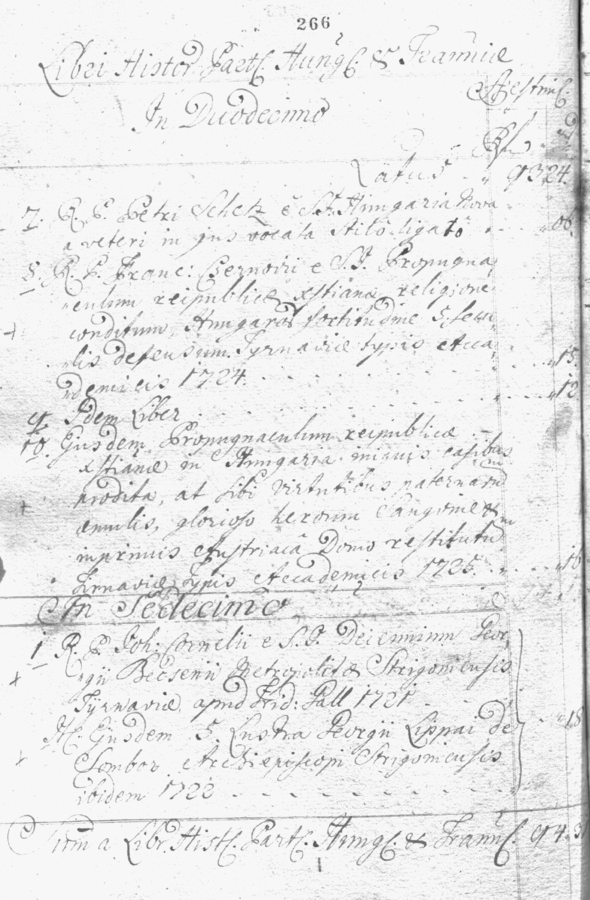 266
Libri Histor Part. Hung. & Trannicæ
In Duodecimo
Æstim.
Rf.
Latus 9324
7. R. P. Petri Schetz e S.J. Hungaria Nova
a veteri in jus vocata stilo ligato
8. R. P. Franc: Csernovii e S.J. Propugna
culum reipublicæ xstianæ religione
conditum, Hungarorū fortitudine
lis defensum. Tyrnaviæ typis Acca
demicis 1724. 15
9. Idem Liber 12
10. Ejusdem Propugnaculum reipublicæ
xstianæ in Hungaria casibus
prodita, at sibi virtutibus
æmulis, glorioso heroum sangvine &
inprimis Austriaca Domo restitutū
Tirnaviæ typis Accademicis 1725. 16
In Sedecimo
1. R. P. Joh: Cornelii e S.J. Decennium Geor,
gii Metropolitæ Strigoniensis
Tyrnaviæ apud Frid: Gall 1721
It. Ejusdem 5. Lustra Georgii Lippai de
Zombor Archiepiscopi Strigoniensis
ibidem 1722 18
Suma Libr. Hist. Part. Hung. & Trann.